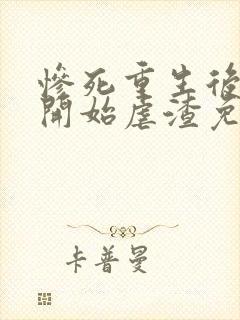 慘死重生後
開始虐渣免
卡普曼